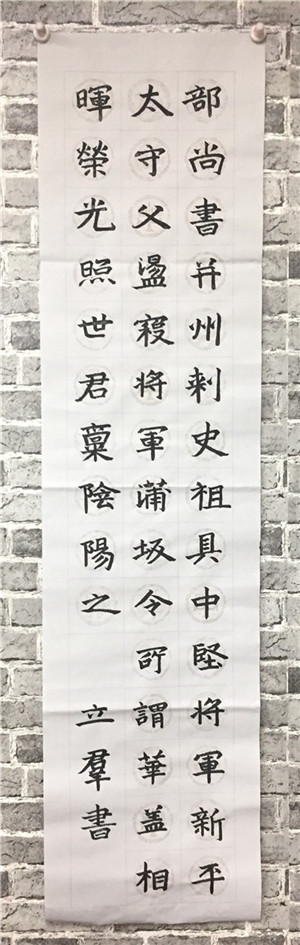 部尚書并州刾史祖具中堅將軍新平
太守父盪寇將軍蒲坂令所謂華盖相
暉榮光照世君稟陰陽之
立羣書